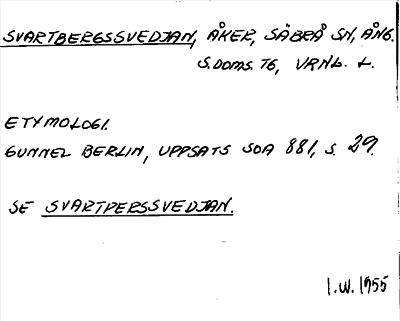 SVARTBERGSSVEDJAN, ÅKER, SÄBRÅ SN, ÅNG.
S.DOMS. TG, VRNL. L.
ETYMOLOGI.
GUNNEL BERLIN, UPPSATS SOA 881, S. 29.
SE SVARTPERSSVEDJAN.
I.W. 1955